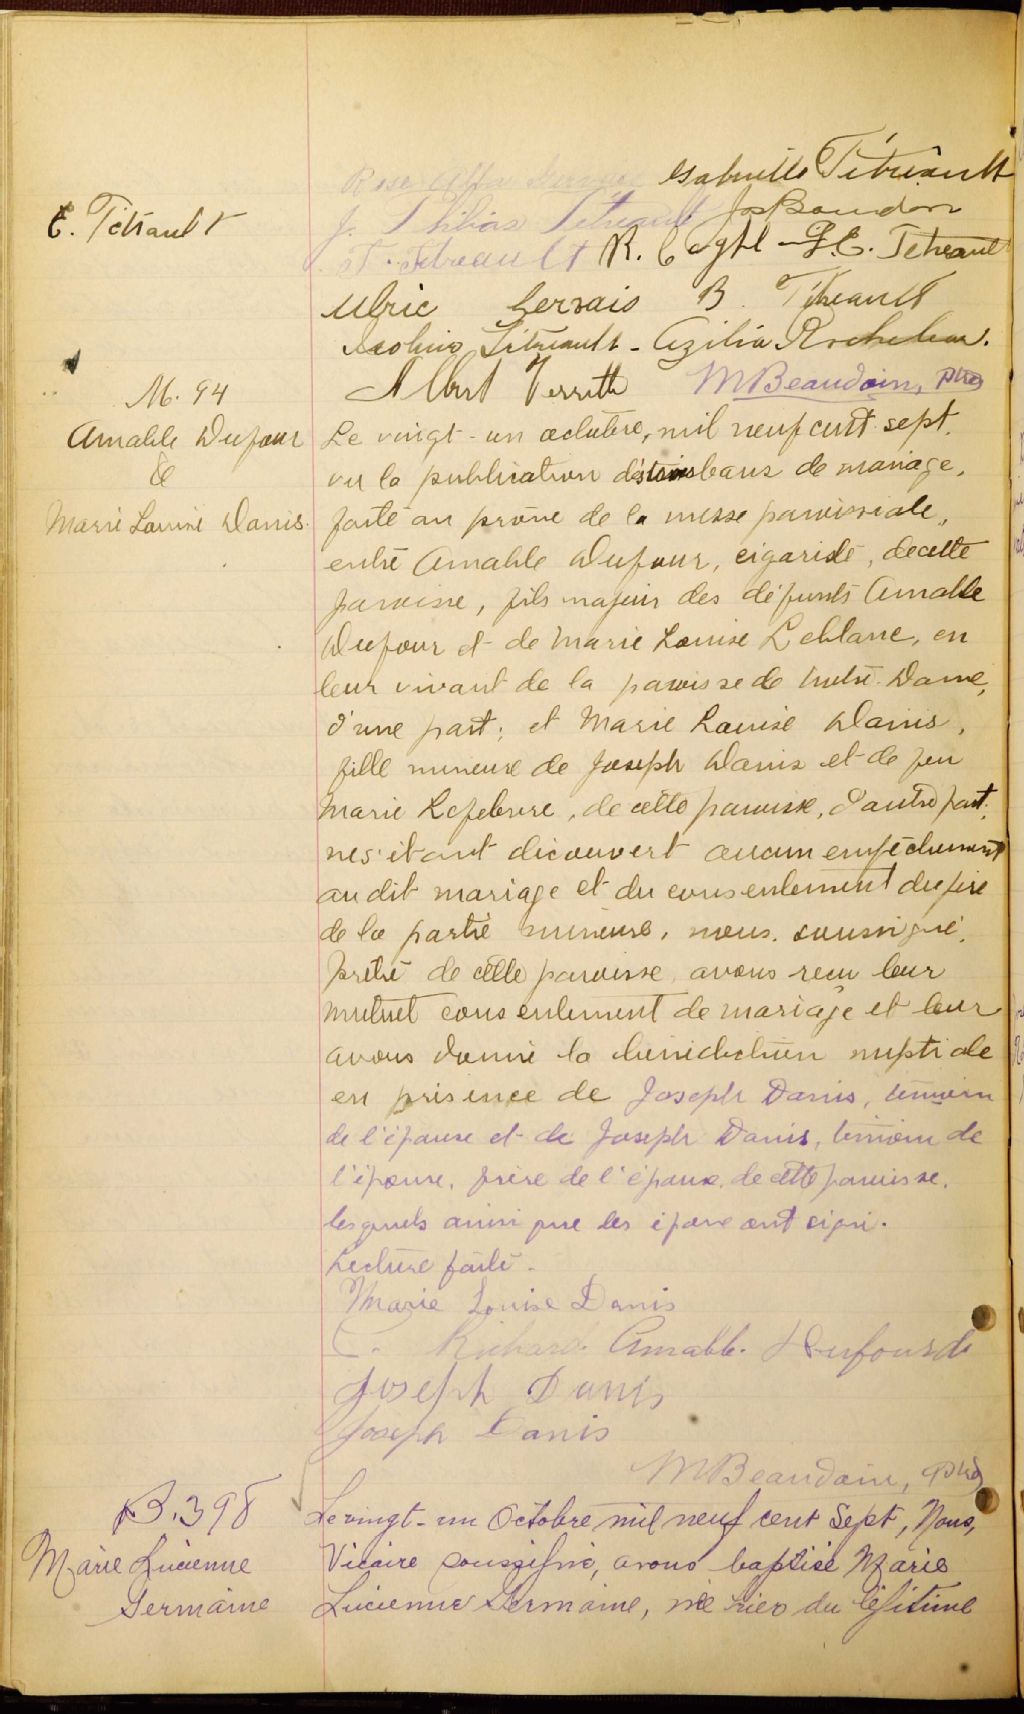 Rose Alba Gervais Gabrielle Tétreault
E. Tétrault
J. Thibias Tétrault Jos Beaudoin
T. Tétreault R. L. E. Tetreault
Ulric Gervais B. Tétreault
Tétreault - Azilia Rocheleau.
Albert Verrette MBeaudoin, ptre
M. 94
Amable Dufour
&
Marie Louise Danis.
Le vingt-un octobre, mil neuf cent sept,
vu la publication des trois bans de mariage,
faite au prône de la messe paroissiale,
entre Amable Dufour, cigariste, de cette
paroisse, fils majeur des défunts Amable
Dufour et de Marie Louise Leblanc, en
leur vivant de la paroisse de Notre-Dame,
d'une part; et Marie Louise Danis,
fille mineure de Joseph Danis et de feu
Marie Lefebvre, de cette paroisse, d'autre part;
ne s'étant découvert aucun empêchement
au dit mariage et du consentement du père
de la partie mineure, nous, soussigné,
prêtre de cette paroisse avons reçu leur
mutuel consentement de mariage et leur
avons donné la bénédiction nuptiale
en présence de Joseph Danis, témoin
de l'épouse et de Joseph Danis, témoin de
l'épouse, frère de l'épouse, de cette paroisse,
lesquels ainsi que les époux ont signé.
Lecture faite.
Marie Louise Danis
Richard. Amable. Dufour
Joseph Danis
Joseph Danis
MBeaudoin, ptre
B. 398
Marie Lucienne
Germaine
Le vingt-un Octobre mil neuf cent Sept, Nous,
Vicaire soussigné, avons baptisé Marie
Lucienne Germaine, née hier du légitime